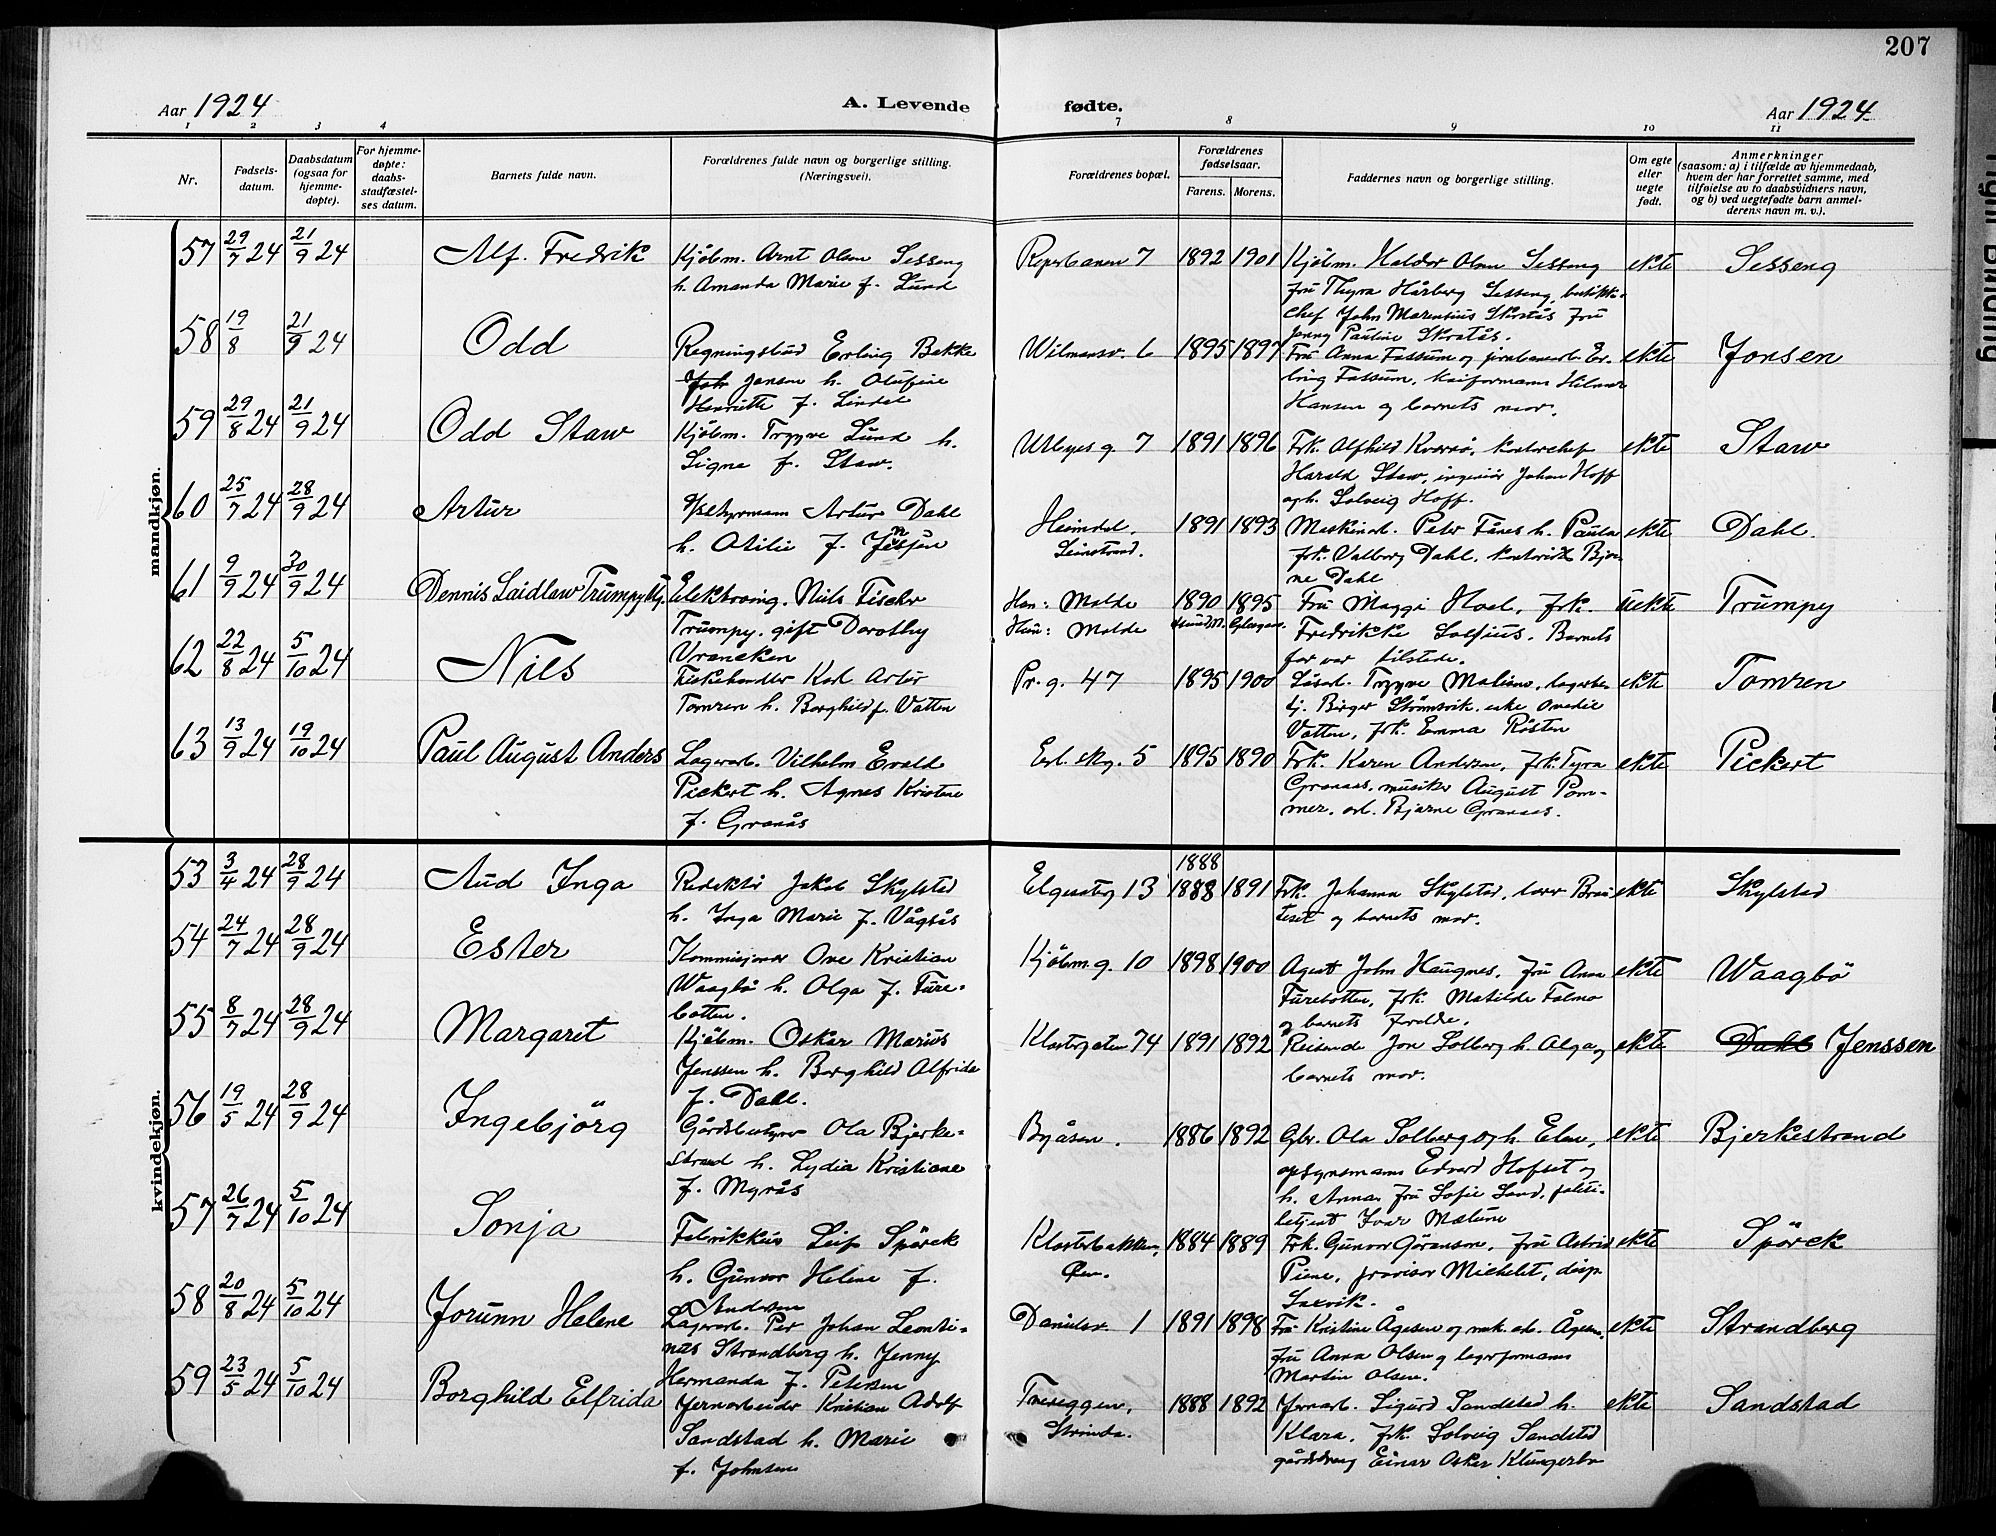 207
Aar 1924
A. Levende fødte.
Aar 1924
1 2 3 4 7 8 9 10 11
Nr.
Fødsels-
datum.
Daabsdatum
(ogsaa for
hjemme-
døpte).
For hjemme-
døpte:
daabs-
stadfæstel-
ses datum.
Barnets fulde navn.
Forældrenes fulde navn og borgerlige stilling.
(Næringsvei).
Forældrenes bopæl.
Forældrenes
fødselsaar.
Farens. Morens.
Faddernes navn og borgerlige stilling.
Om egte
eller
uegte
født.
Anmerkninger
(saasom: a) i tilfælde av hjemmedaab,
hvem der har forrettet samme, med
tilføielse av to daabsvidners navn,
og b) ved uegtefødte barn anmel-
derens navn m. v.).
mandkjøn.
57 29/7 24 21/9 24 Alf. Fredrik
Kjöbm. Arnt Olsen Sesseng
h. Amanda Marie f. Lund
Reperbanen 7 1892 1901
Kjöbm. Haldor Olsen Sesseng
fru Thyra Hårberg Sesseng, butikk-
chef John Marentius Skrstås fru
Jenny Pauline Skrstås.
ekte Sesseng
58 19/8 21/9 24 Odd
Regningsbud Erling Bakke
Jonsen h. Olufine
Henriette f. Lindal
Wilmansv. 6 1895 1897
Fru Anna Fossum og jernbanearb. Er-
ling Fossum, kaiformann Hilmar
Hansen og barnets mor.
ekte Jonsen
59 29/8 24 21/9 24 Odd Staw
Kjöbm. Trygve Lund h.
Signe f. Staw.
Utbyes g. 7 1891 1896
Frk. Alfhild Kvernö, kontorchef
Harald Staw, ingeniör Johan Hoff
og h. Solveig Hoff.
ekte Staw
60 25/7 24 28/9 24 Artur
Artur Dahl
h. Otilie f.
Heimdal,
Leinstrand.
1891 1893
Maskinarb. Peter Fånes h. Paula
frk. Valborg Dahl, kontorist Bjar-
ne Dahl
ekte Dahl.
61 9/9 24 30/9 24 Dennis Laidlaw Trumpy
Elektroing. Niels Fischer
Trumpy. gift Dorothy
Vrancken
Han: Molde
Hun: Molde
1890 1895
Fru Maggi Hoel, frk.
Fredrikke Solfius. Barnets
far var tilstede.
uekte Trumpy
62 22/8 24 5/10 24 Nils
Fiskehandler Karl Artur
Tomren h. Borghild f. Vatten
Pr. g. 47 1895 1900
Trygve Maliens, lagerbe-
tj. Birger Strömsvik, enke Anedie
Vatten, frk. Emma Rösten
ekte Tomren
63 13/9 24 19/10 24 Paul August Anders
Lagerarb. Vilhelm Evald
Pickert h. Agnes Kristine
f. Granås
Erl. skg. 5 1895 1890
Frk. Karen Andersen, frk. Tyra
Granaas, musiker August Pom-
mer, arb. Bjarne Granaas.
ekte Pickert
kvindekjøn.
53 3/4 24 28/9 24 Aud Inga
Redaktör Jakob Skylstad
h. Inga Marie f. Vågsås
Elgeseterg 13 1888 1888 1891
Frk. Johanna Skylstad, lærer Brau-
teset og barnets mor.
ekte Skylstad
54 24/7 24 28/9 24 Ester
Kommisjonær Ove Kristian
Waagbö h. Olga f. Fure-
botten.
Kjöbm. g. 10 1898 1900
Agent John Haugnes, fru Anna
Furebotten, frk. Matilde Folmo
og barnets foreldre.
ekte Waagbö
55 8/7 24 28/9 24 Margaret
Kjöbm. Oskar Marius
Jenssen h. Borghild Alfrida
f. Dahl.
Klostergaten 74 1891 1892
Reisende Jon Solberg h. Olga og
barnets mor.
ekte Dahl Jenssen
56 19/5 24 28/9 24 Ingebjörg
Gårdsbestyrer Ola Bjerke-
strand h. Lydia Kristiane
f. Myrås
Byåsen. 1886 1892
Gbr. Ola Solberg og h. Elen,
opsynsmann Edvard Hofset og
h. Anna, fru Sofie Sand, politi-
betjent Ivar Mælum
ekte Bjerkestrand
57 26/7 24 5/10 24 Sonja
Fabrikkeier Leif Spörck
h. Gunvor Helene f.
Andersen
Klosterbakken,
Öen.
1884 1889
Frk. Gunvor Göranson, fru Astrid
Piene, provisor Michelet, disp.
Saxvik.
ekte Spörck
58 20/8 24 5/10 24 Jorunn Helene
Lagerarb. Per Johan Leonti-
nus Strandberg h. Jenny
Hermanda f. Petersen
Danielsv. 1 1891 1898
Fru Kristine Ågesen og mek. arb. Ågesen,
fru Anna Olsen og lagerformann
Martin Olsen.
ekte Strandberg
59 23/5 24 5/10 24 Borghild Elfrida
Jernarbeider Kristian Adolf
Sandstad h. Marie
f. Johnsen
Tresseggen,
Strinda.
1888 1892
Jernarb. Sigurd Sandstad h.
Klara, frk. Solveig Sandstad
gårdsdreng Einar Oskar Klungerbo
ekte Sandstad